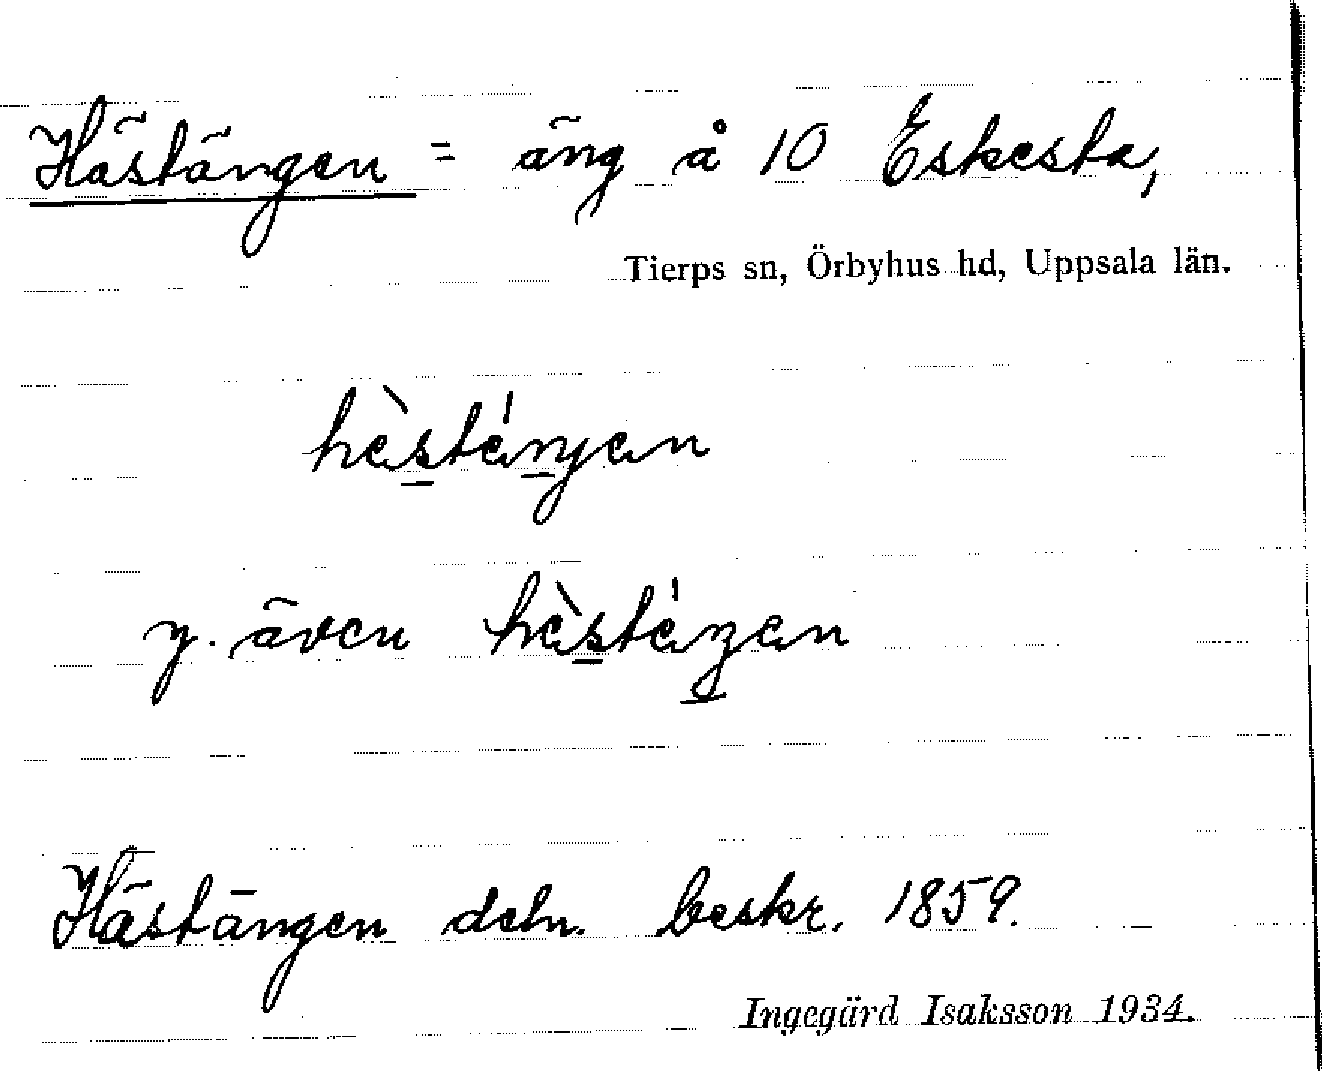 Hästängen = äng å 10 Eskesta,
Tierps sn, Örbyhus hd, Uppsala län.
hὲstέŋen
y. även hὲstέŋen
Hästängen deln. beskr. 1859.
Ingegärd Isaksson 1934.